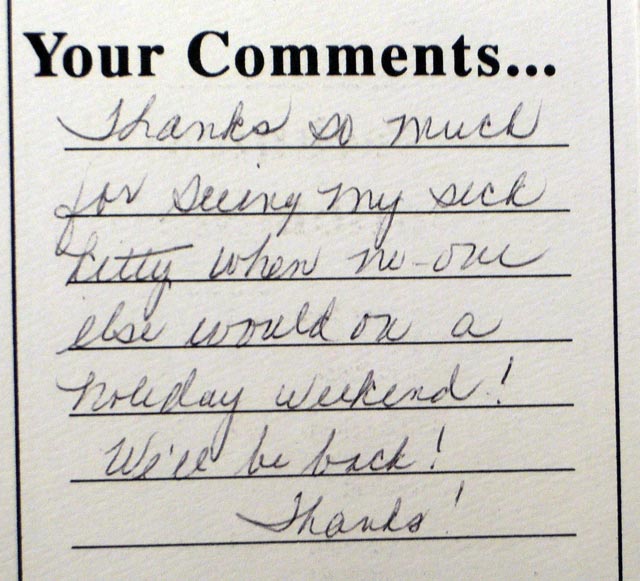 Your Comments...
Thanks so much
for seeing my sick
kitty when no-one
else would on a
holiday weekend!
We'll be back!
Thanks!